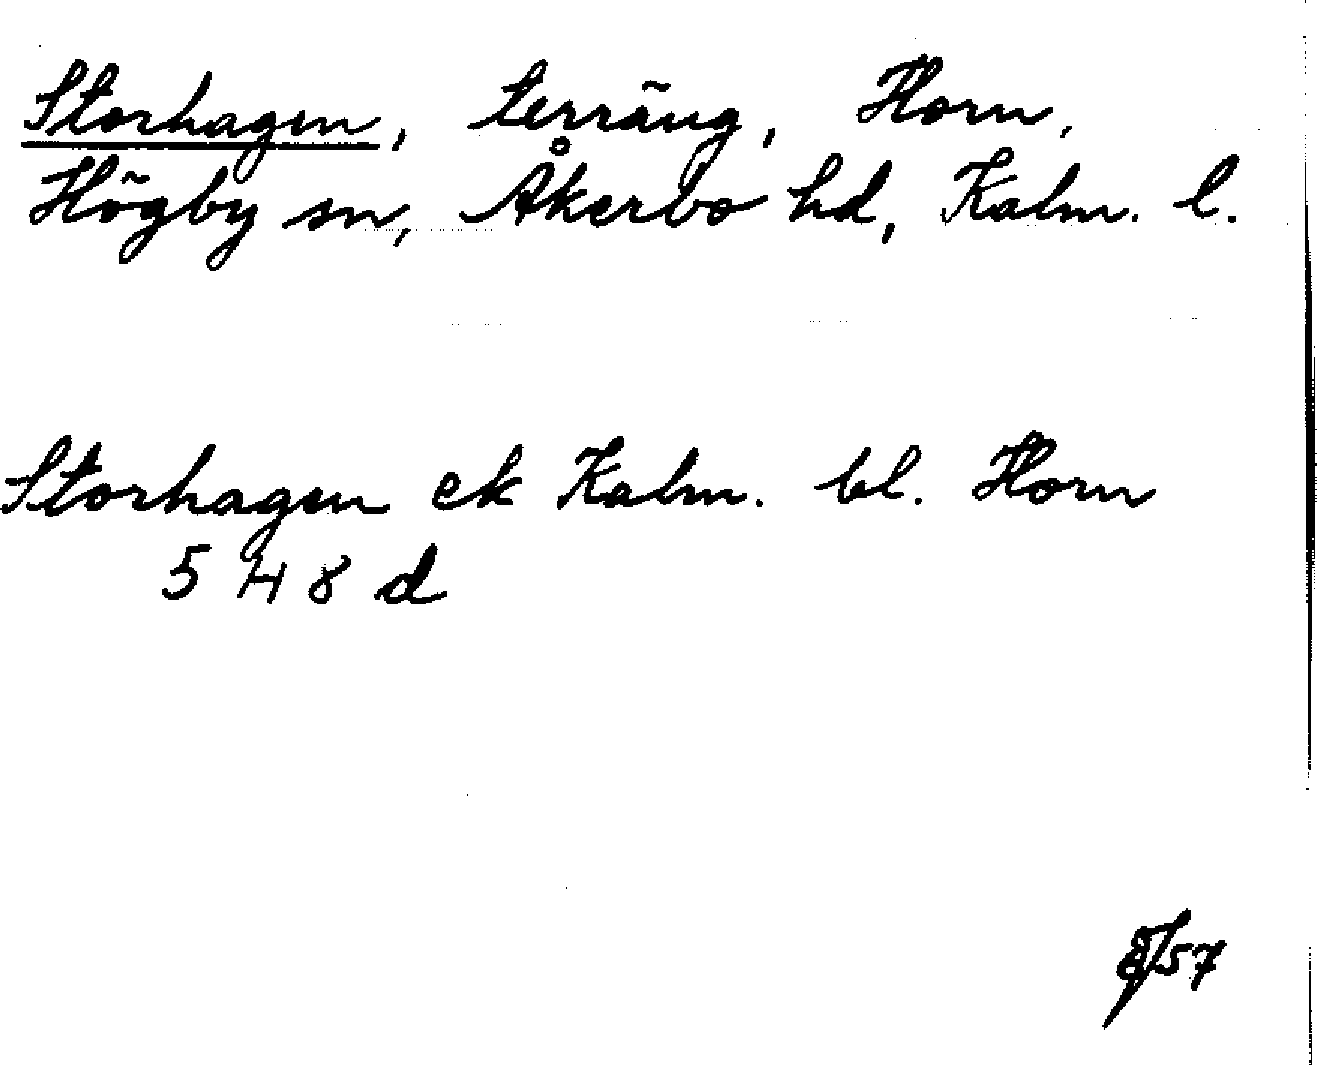 Storhagen, terräng, Horn,
Högby sn, Åkerbo hd, Kalm. l.
Storhagen ek Kalm. bl. Horn
5 H 8 d
8/57